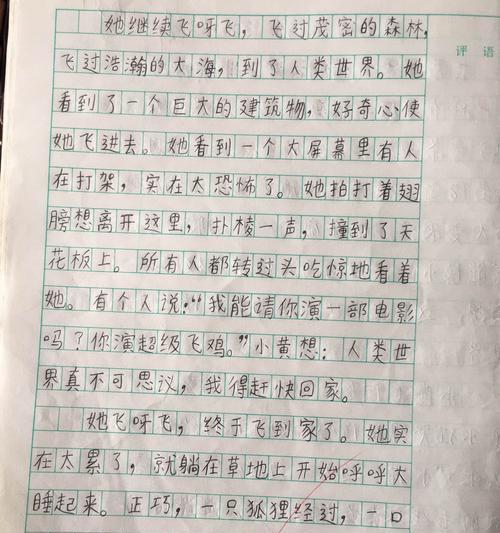 她继续飞呀飞，飞过茂密的森林，
评语
飞过浩瀚的大海，到了人类世界。她
看到了一个巨大的建筑物，好奇心使
她飞进去。她看到一个大屏幕里有人
在打架，实在太恐怖了。她拍打着翅
膀想离开这里，扑棱一声，撞到了天
花板上。所有人都转过头吃惊地看着
她。有个人说：“我能请你演一部电影
吗？你演超级飞鸡。”小黄想：人类世
界真不可思议，我得赶快回家。
她飞呀飞，终于飞到家了。她实
在太累了，就躺在草地上开始呼呼大
睡起来。正巧，一只狐狸经过，一口